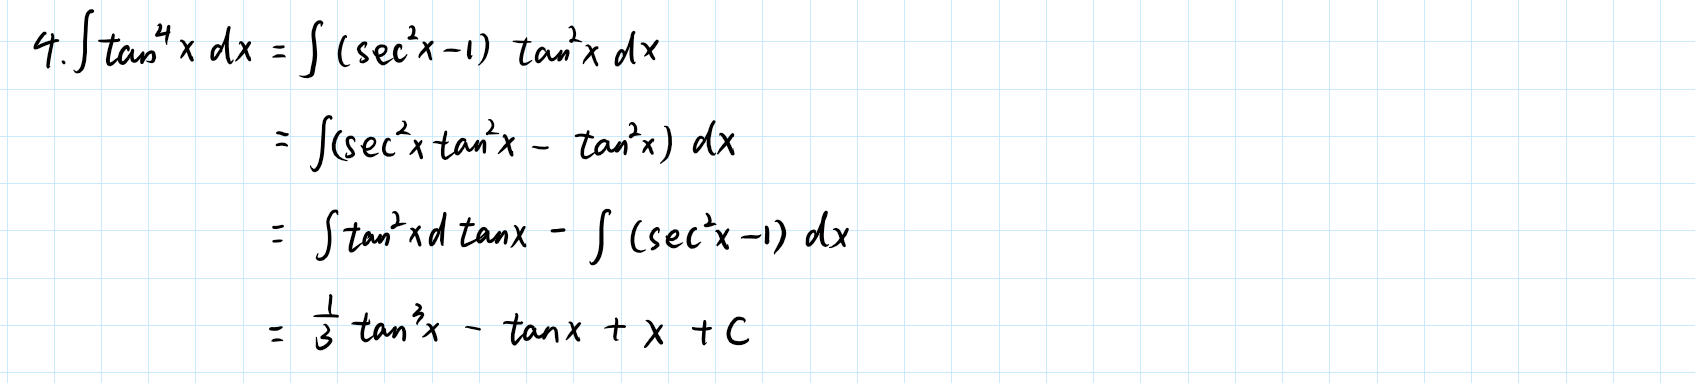 4. ∫ tan⁴x dx = ∫ (sec²x - 1) tan²x dx
= ∫(sec²x tan²x - tan²x) dx
= ∫ tan²x d tanx - ∫ (sec²x - 1) dx
= 1/3 tan³x - tanx + x + C